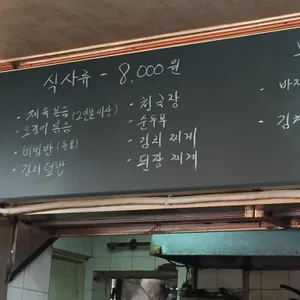 식사류 - 8,000원
- 제육볶음 (2인분이상)
- 오징어볶음
- 비빔밥
- 김치덮밥
- 청국장
- 순두부
- 김치찌게
- 된장찌게